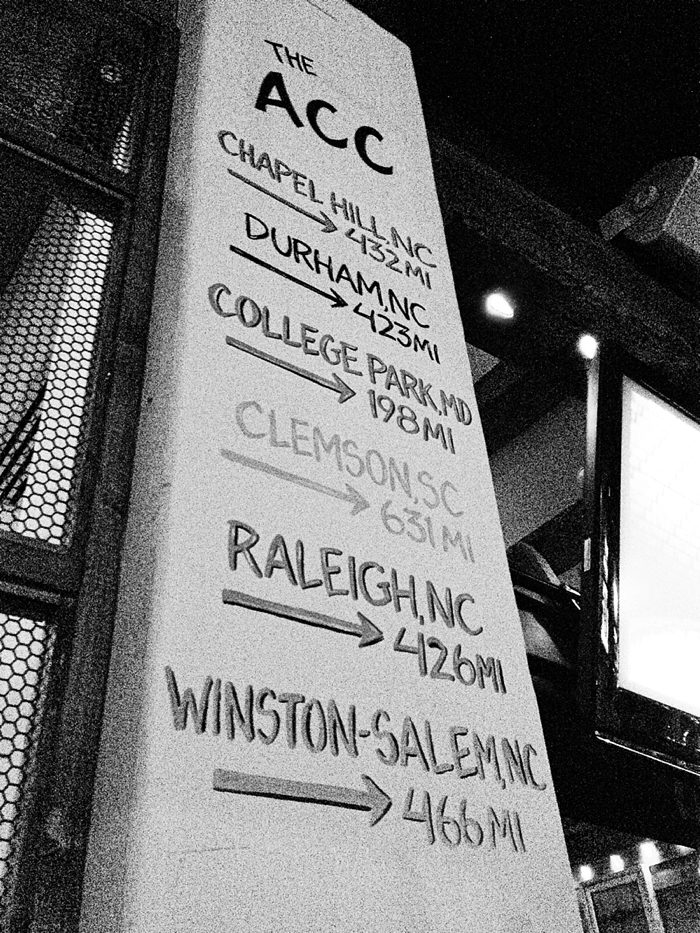 THE
ACC
CHAPEL HILL, NC
432 MI
DURHAM, NC
423 MI
COLLEGE PARK, MD
198 MI
CLEMSON, SC
631 MI
RALEIGH, NC
426 MI
WINSTON-SALEM, NC
466 MI